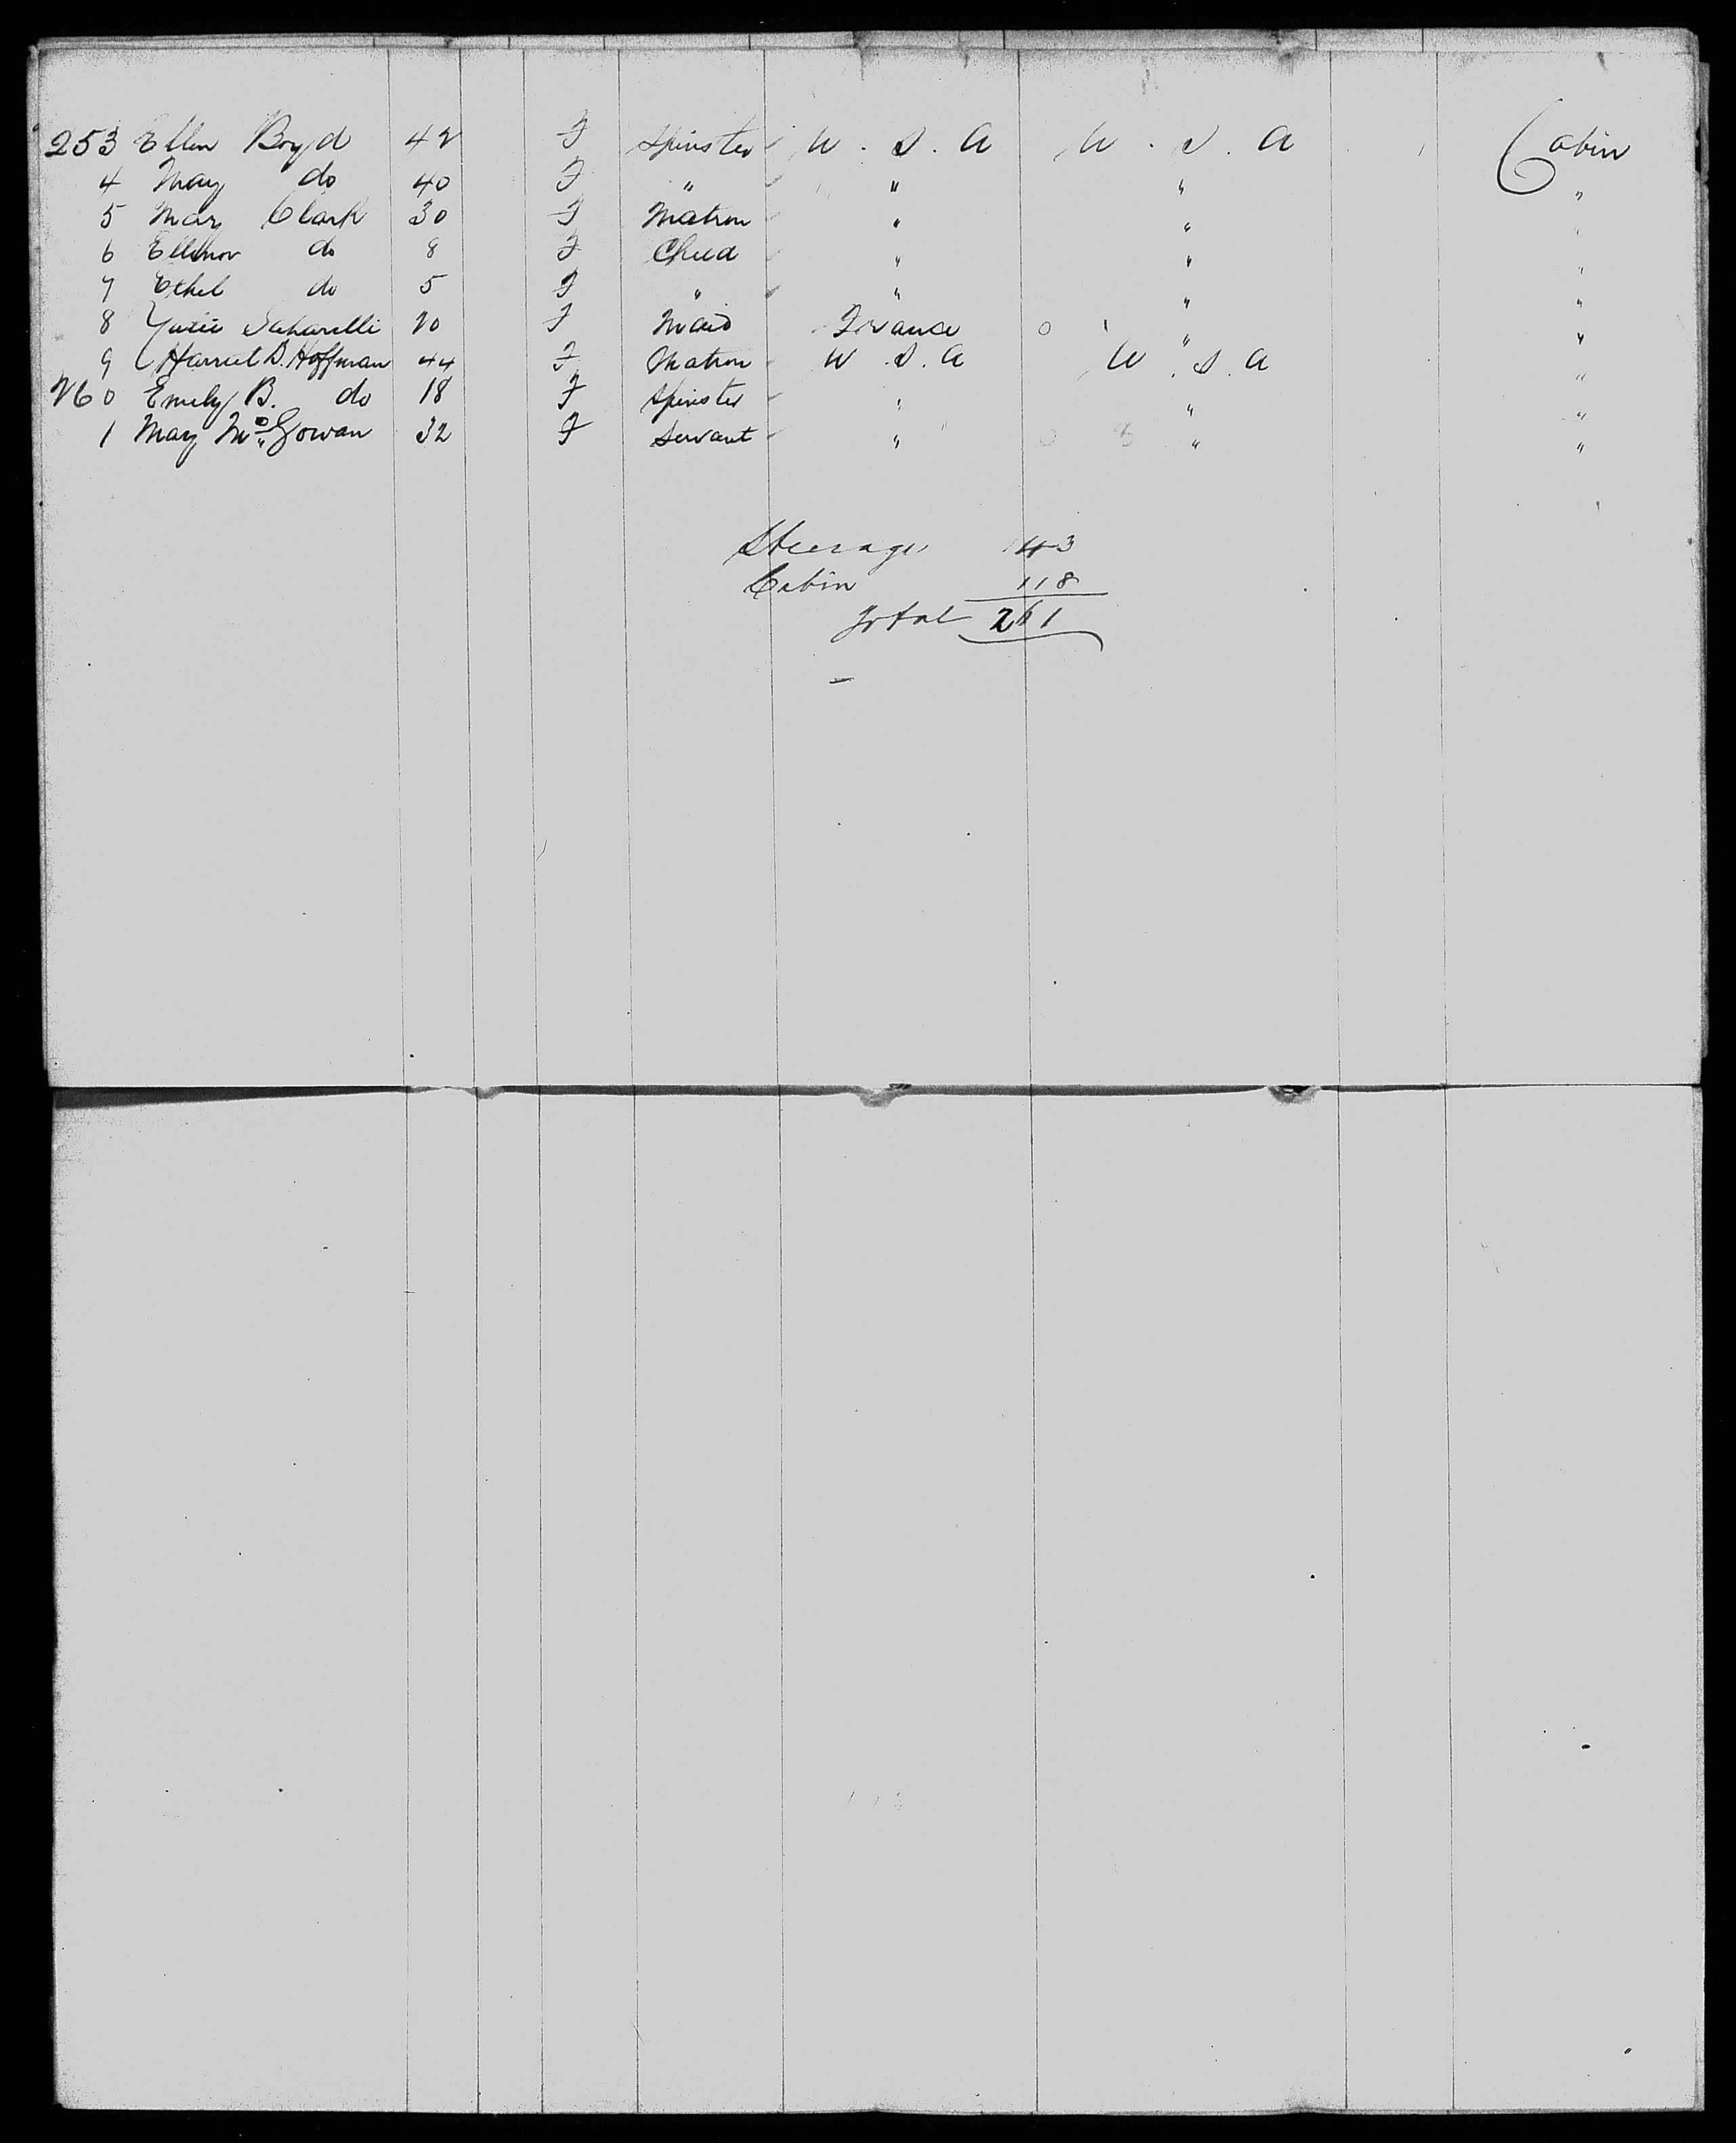 253 Ellen Boyd 42 F Spinster U. S. A U. S. A Cabin
4 May do 40 F " " " "
5 Mary Clark 30 F Matron " " "
6 Ellinor do 8 F Child " " "
7 Ethel do 5 F " " " "
8 20 F Maid France " "
9 Harriet D. Hoffman 44 F Matron U. S. A U. S. A "
260 Emily B. do 18 F Spinster " " "
1 May McGowan 32 F Servant " " "
Steerage 143
Cabin 118
Total 261